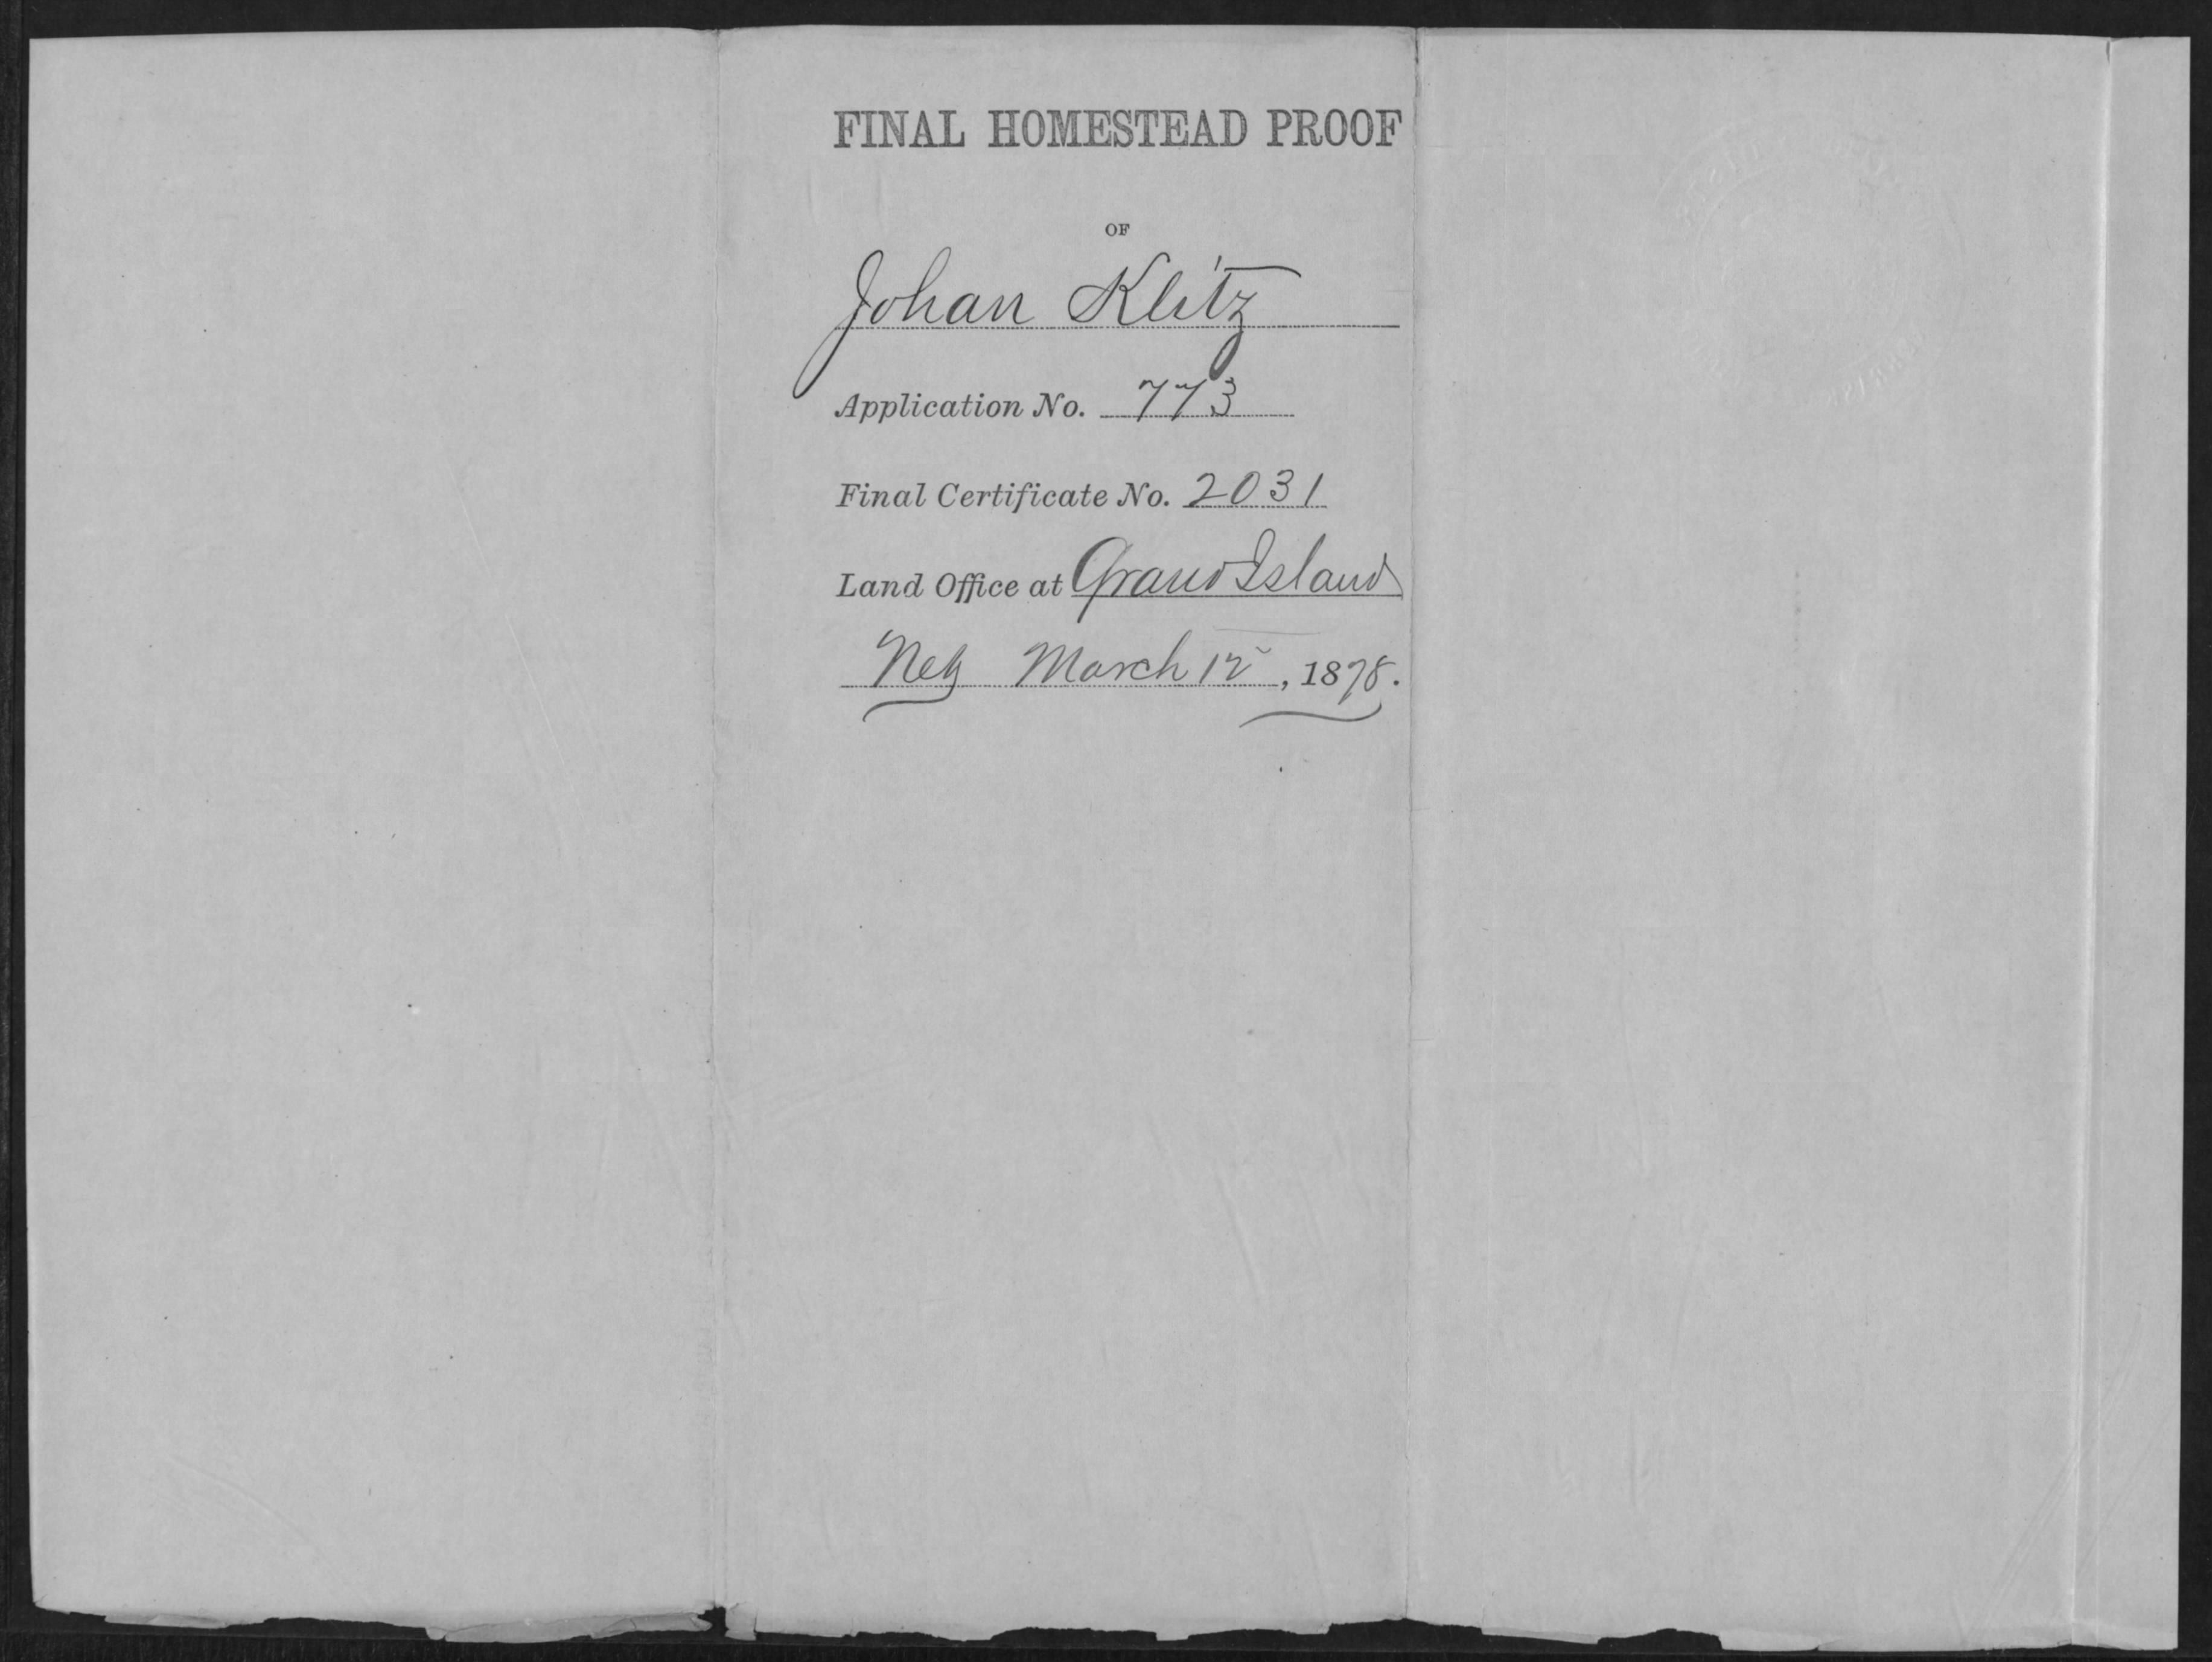 FINAL HOMESTEAD PROOF
OF
Johan Klitz
Application No. 773
Final Certificate No. 2031
Land Office at Grand Island
Neb March 12, 1878.